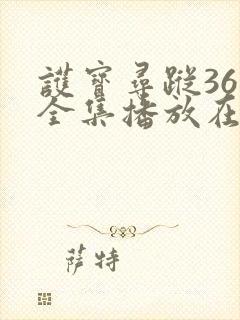 護寶尋蹤36
全集播放在
萨特